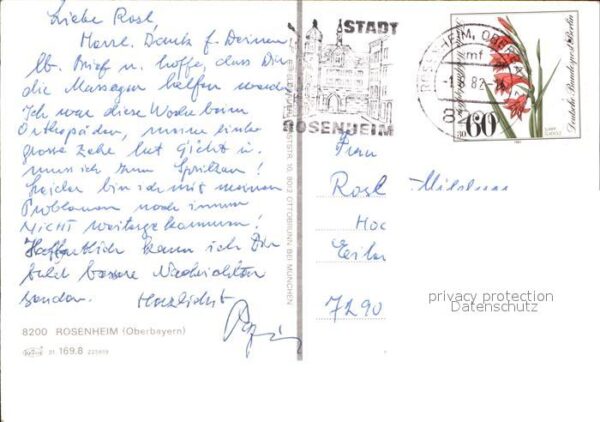 Liebe Rosl,
Herzl. Dank f. Deinen
lb. Brief u. hoffe, dass Dir
die Massagen helfen werden
Ich war diese Woche beim
Orthopäden, meine linke
grosse Zehe hat Gicht u.
muss ich zum Spritzen!
Leider bin ich mit meinen
Problemen noch immer
nicht weitergekommen!
Hoffentlich kann ich Dir
bald bessere Nachrichten
senden. Herzlichst
8200 ROSENHEIM (Oberbayern)
31 169.8
10, 8012 OTTOBRUNN BEI MÜNCHEN
STADT
ROSENHEIM
ROSENHEIM, OBERBAY
mf
82
60
Deutsche Bundespost Berlin
Frau
Rosl
Hoc
7290
privacy protection
Datenschutz